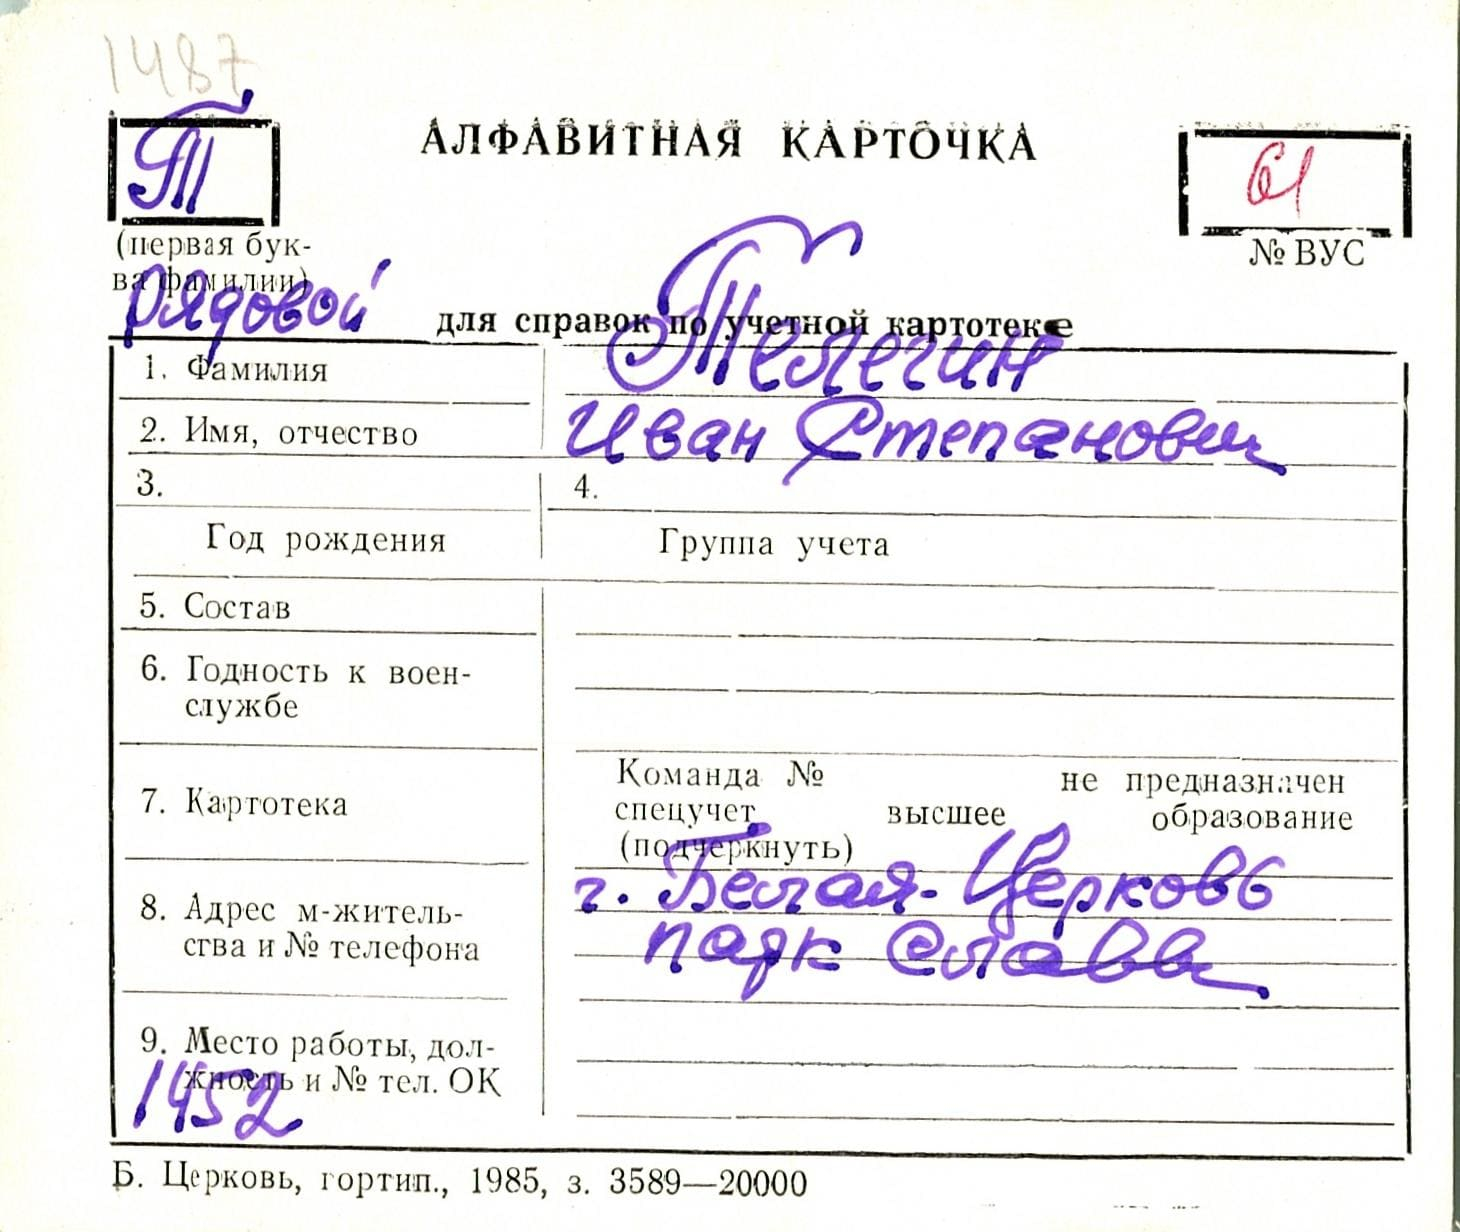 1487
Т
АЛФАВИТНАЯ КАРТОЧКА
61
(первая бук-
ва фамилии)
№ ВУС
рядовой
для справок по учетной картотеке
1. Фамилия
Телегин
2. Имя, отчество
Иван Степанович
3.
4.
Год рождения
Группа учета
5. Состав
6. Годность к воен-
службе
7. Картотека
Команда № не предназначен
спецучет высшее образование
(подчеркнуть)
8. Адрес м-житель-
ства и № телефона
г. Белая-Церковь
парк Славы
9. Место работы, дол-
жность и № тел. ОК
1452
Б. Церковь, гортип., 1985, з. 3589—20000